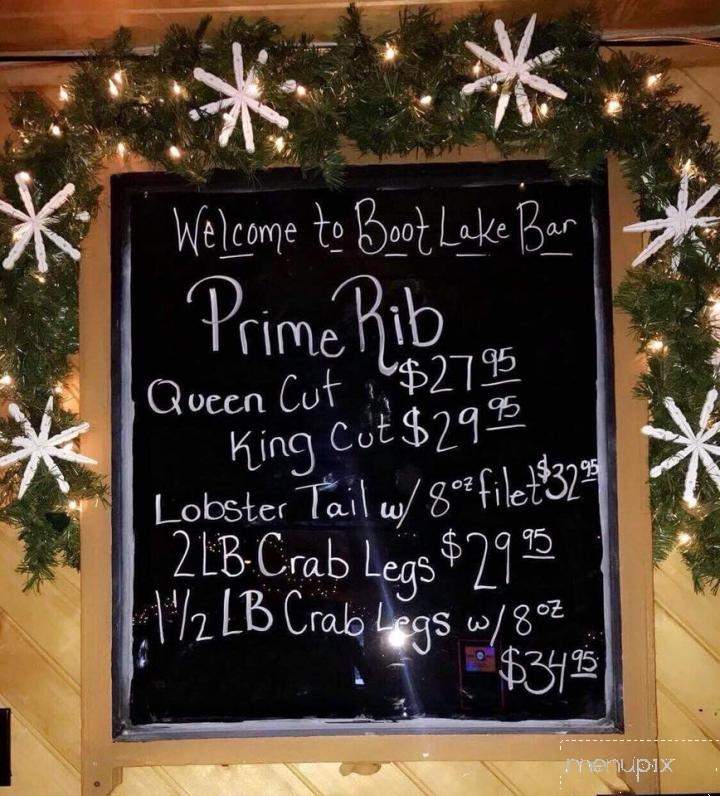 Welcome to Boot Lake Bar
Prime Rib
Queen Cut $27 95
King Cut $29 95
Lobster Tail w/ 8oz filet $32 95
2 LB Crab Legs $29 95
1 1/2 LB Crab Legs w/ 8oz
$34 95
menupix